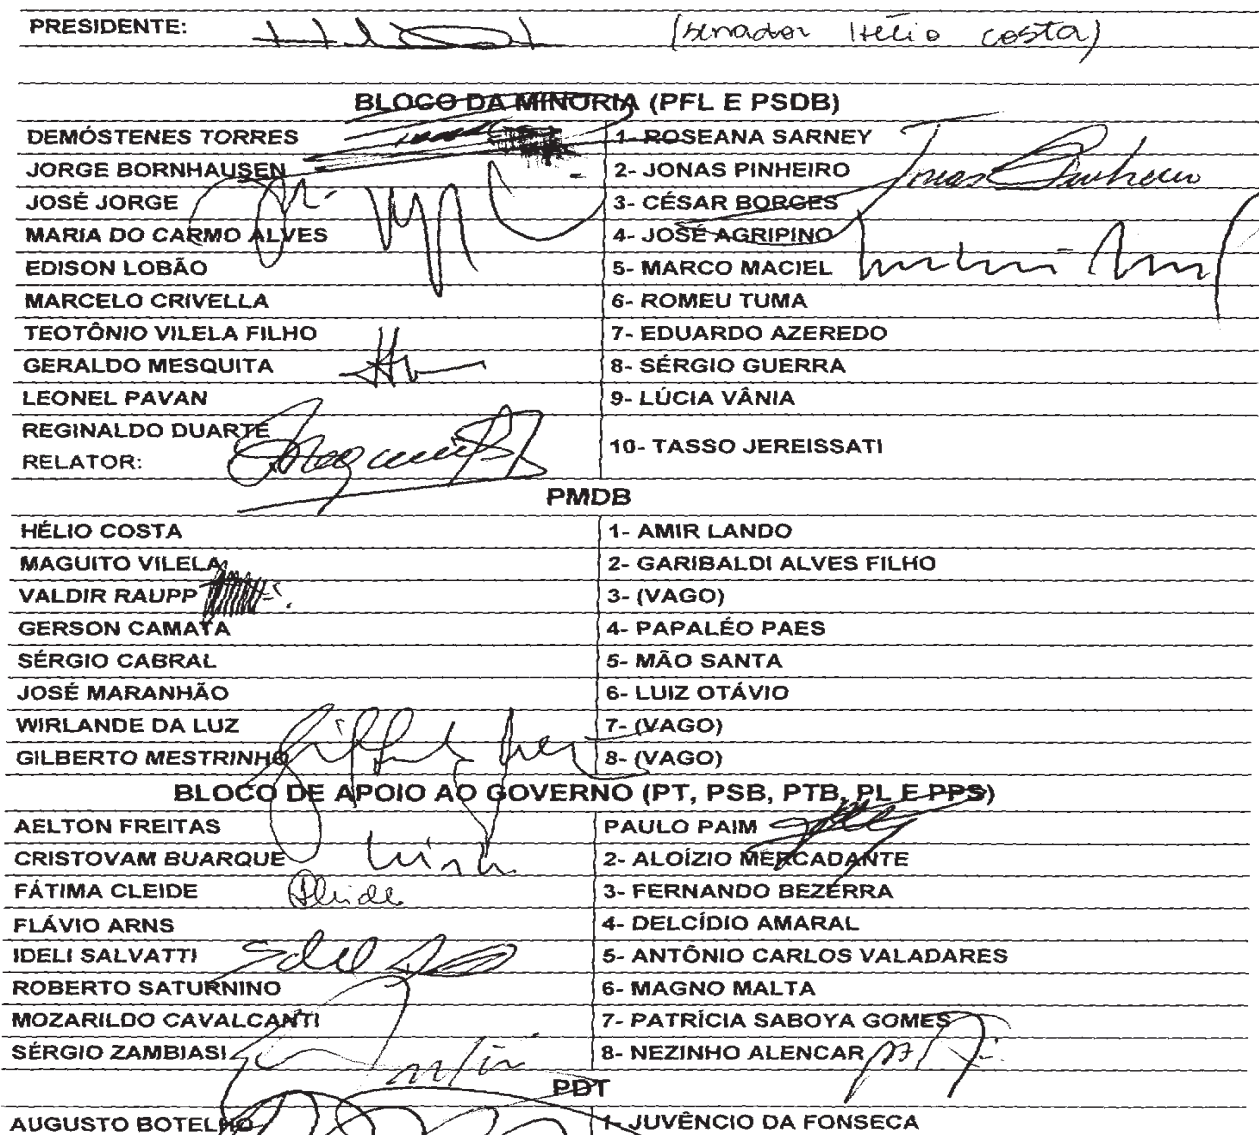 PRESIDENTE: (senador Hélio costa)
BLOCO DA MINORIA (PFL E PSDB)
DEMÓSTENES TORRES 1- ROSEANA SARNEY
JORGE BORNHAUSEN 2- JONAS PINHEIRO Jonas Pinheiro
JOSÉ JORGE 3- CÉSAR BORGES
MARIA DO CARMO ALVES 4- JOSÉ AGRIPINO
EDISON LOBÃO 5- MARCO MACIEL
MARCELO CRIVELLA 6- ROMEU TUMA
TEOTÔNIO VILELA FILHO 7- EDUARDO AZEREDO
GERALDO MESQUITA 8- SÉRGIO GUERRA
LEONEL PAVAN 9- LÚCIA VÂNIA
REGINALDO DUARTE
RELATOR: 10- TASSO JEREISSATI
PMDB
HÉLIO COSTA 1- AMIR LANDO
MAGUITO VILELA 2- GARIBALDI ALVES FILHO
VALDIR RAUPP 3- (VAGO)
GERSON CAMATA 4- PAPALÉO PAES
SÉRGIO CABRAL 5- MÃO SANTA
JOSÉ MARANHÃO 6- LUIZ OTÁVIO
WIRLANDE DA LUZ 7- (VAGO)
GILBERTO MESTRINHO 8- (VAGO)
BLOCO DE APOIO AO GOVERNO (PT, PSB, PTB, PL E PPS)
AELTON FREITAS PAULO PAIM
CRISTOVAM BUARQUE 2- ALOÍZIO MERCADANTE
FÁTIMA CLEIDE 3- FERNANDO BEZERRA
FLÁVIO ARNS 4- DELCÍDIO AMARAL
IDELI SALVATTI 5- ANTÔNIO CARLOS VALADARES
ROBERTO SATURNINO 6- MAGNO MALTA
MOZARILDO CAVALCANTI 7- PATRÍCIA SABOYA GOMES
SÉRGIO ZAMBIASI 8- NEZINHO ALENCAR
PDT
AUGUSTO BOTELHO 1- JUVÊNCIO DA FONSECA